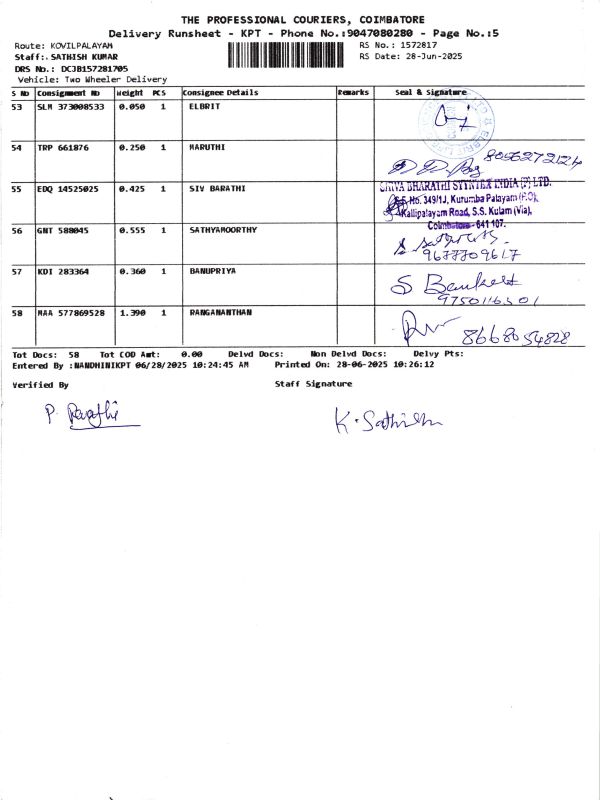 THE PROFESSIONAL COURIERS, COIMBATORE
Delivery Runsheet - KPT - Phone No.:9047080280 - Page No.:5
Route: KOVILPALAYAM RS No.: 1572817
Staff: SATHISH KUMAR RS Date: 28-Jun-2025
DRS No.: DCJB157281705
Vehicle: Two Wheeler Delivery
S No Consignment No Weight PCS Consignee Details Remarks Seal & Signature
53 SLM 373008533 0.050 1 ELBRIT
54 TRP 661876 0.250 1 MARUTHI
8056272124
55 EDQ 14525025 0.425 1 SIV BARATHI
SHIVA BHARATHI SYNTEX INDIA (P) LTD.
S.F. No. 349/1J, Kurumba Palayam (P.O),
Kallipalayam Road, S.S. Kulam (Via),
Coimbatore - 641 107.
56 GNT 588045 0.555 1 SATHYAMOORTHY
9677709617
57 KDI 283364 0.360 1 BANUPRIYA
9750116501
58 MAA 577869528 1.390 1 RANGANANTHAN
8668054828
Tot Docs: 58 Tot COD Amt: 0.00 Delvd Docs: Non Delvd Docs: Delvy Pts:
Entered By :NANDHINIKPT 06/28/2025 10:24:45 AM Printed On: 28-06-2025 10:26:12
Verified By Staff Signature
K. Sathish